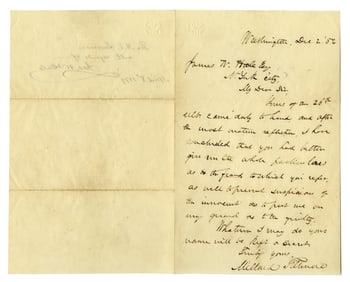 Washington, Dec 2 '52
James W. Hale Esq
N. York City.
My Dear Sir,
Yours of the 20th
ult. came duly to hand and after
the most mature reflection, I have
concluded that you had better
give me the whole particulars
as to the frauds to which you refer,
as well to prevent suspicion of
the innocent as to put me on
my guard as to the guilty.
Whatever I may do your
name will be kept a secret.
Truly yours
Millard Fillmore